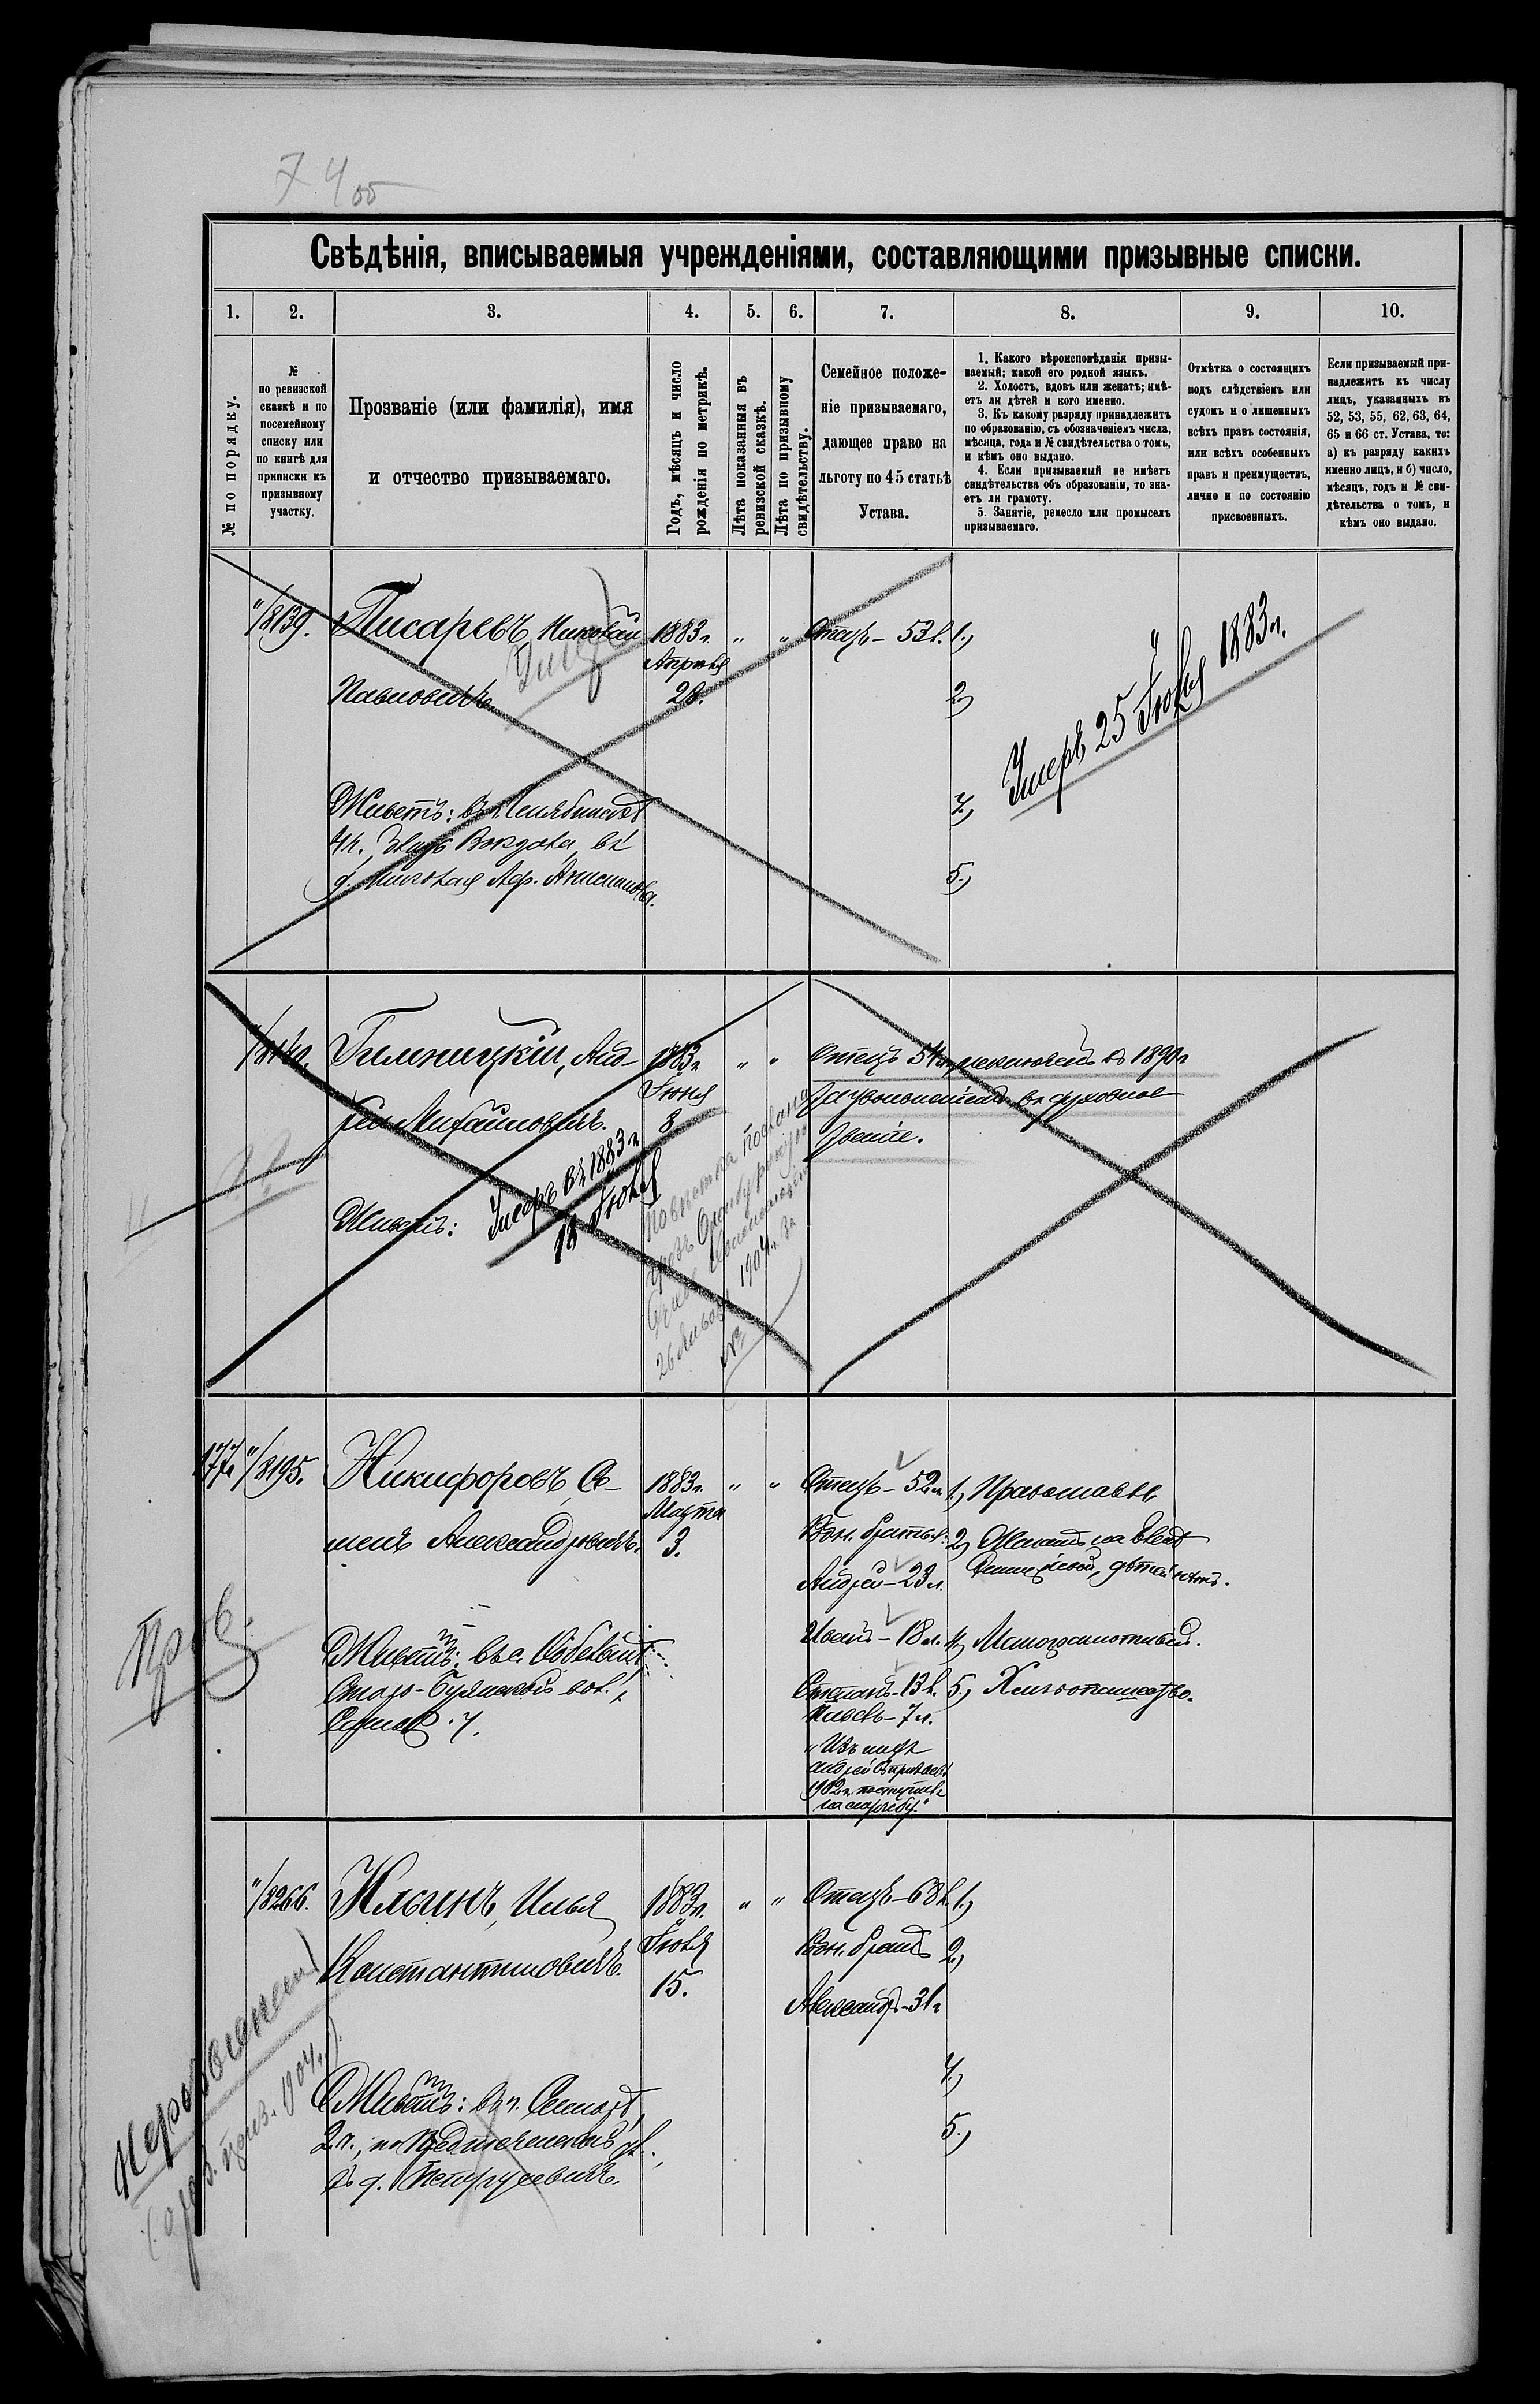 7400
Свѣдѣнія, вписываемыя учрежденіями, составляющими призывные списки.
1. 2. 3. 4. 5. 6. 7. 8. 9. 10.
№ по порядку.
№
по ревизской
сказкѣ и по
посемейному
списку или
по книгѣ для
приписки къ
призывному
участку.
Прозваніе (или фамилія), имя
и отчество призываемаго.
Годъ, мѣсяцъ и число
рожденія по метрикѣ.
Лѣта показанныя въ
ревизской сказкѣ.
Лѣта по призывному
свидѣтельству.
Семейное положе-
ніе призываемаго,
дающее право на
льготу по 45 статьѣ
Устава.
1. Какого вѣроисповѣданія призы-
ваемый; какой его родной языкъ.
2. Холостъ, вдовъ или женатъ; имѣ-
етъ ли дѣтей и кого именно.
3. Къ какому разряду принадлежитъ
по образованію, съ обозначеніемъ числа,
мѣсяца, года и № свидѣтельства о томъ,
и кѣмъ оно выдано.
4. Если призываемый не имѣетъ
свидѣтельства объ образованіи, то зна-
етъ ли грамоту.
5. Занятіе, ремесло или промыселъ
призываемаго.
Отмѣтка о состоящихъ
подъ слѣдствіемъ или
судомъ и о лишенныхъ
всѣхъ правъ состоянія,
или всѣхъ особенныхъ
правъ и преимуществъ,
лично и по состоянію
присвоенныхъ.
Если призываемый при-
надлежитъ къ числу
лицъ, указанныхъ въ
52, 53, 55, 62, 63, 64,
65 и 66 ст. Устава, то:
а) къ разряду какихъ
именно лицъ, и б) число,
мѣсяцъ, годъ и № сви-
дѣтельства о томъ, и
кѣмъ оно выдано.
"/8139. Писаревъ, Николай 1883 г. " " Отецъ - 53 л. 1.)
Апрѣля
Павловичъ. 28. 2.)
Умеръ 25 Іюля 1883 г.
Живетъ: въ г. Челябинскѣ 4.)
4 ч.
5.)
Гилницкій, Анд- 1883 г. " " Отецъ 54 л. исключенъ въ 1890 г.
Іюня за увольненіемъ въ духовное
рей Михайловичъ. 8 званіе.
Живетъ: Умеръ въ 1883 г.
18 Іюля
Повѣстка послана
чрезъ Оренбургскую
1904 г. за
№
177. "/8195. Никифоровъ, Се- 1883 г. " " Отецъ - 52 л. 1.) Православн.
Марта
менъ Александровичъ. 3. Род. братья: 2.) Женатъ на
Андрей - 23 л. дѣтей нѣтъ.
Иванъ - 18 л. 4.) Малограмотный.
Живетъ: въ с.
Старо-Буянской вол., Степанъ - 13 л. 5.) Хлѣбопашество.
Самар. у. 7 л.
"Изъ нихъ
Андрей въ призывъ
1902 г. поступилъ
на службу."
"/8266. Ильинъ, Илья 1883 г. " " Отецъ - 68 л. 1.)
Іюля
Константиновичъ. 15. Род. братъ 2.)
Александръ - 31 г.
4.)
Живетъ: въ г. Самарѣ,
2 ч., по Предтеченской ул., 5.)
въ д.